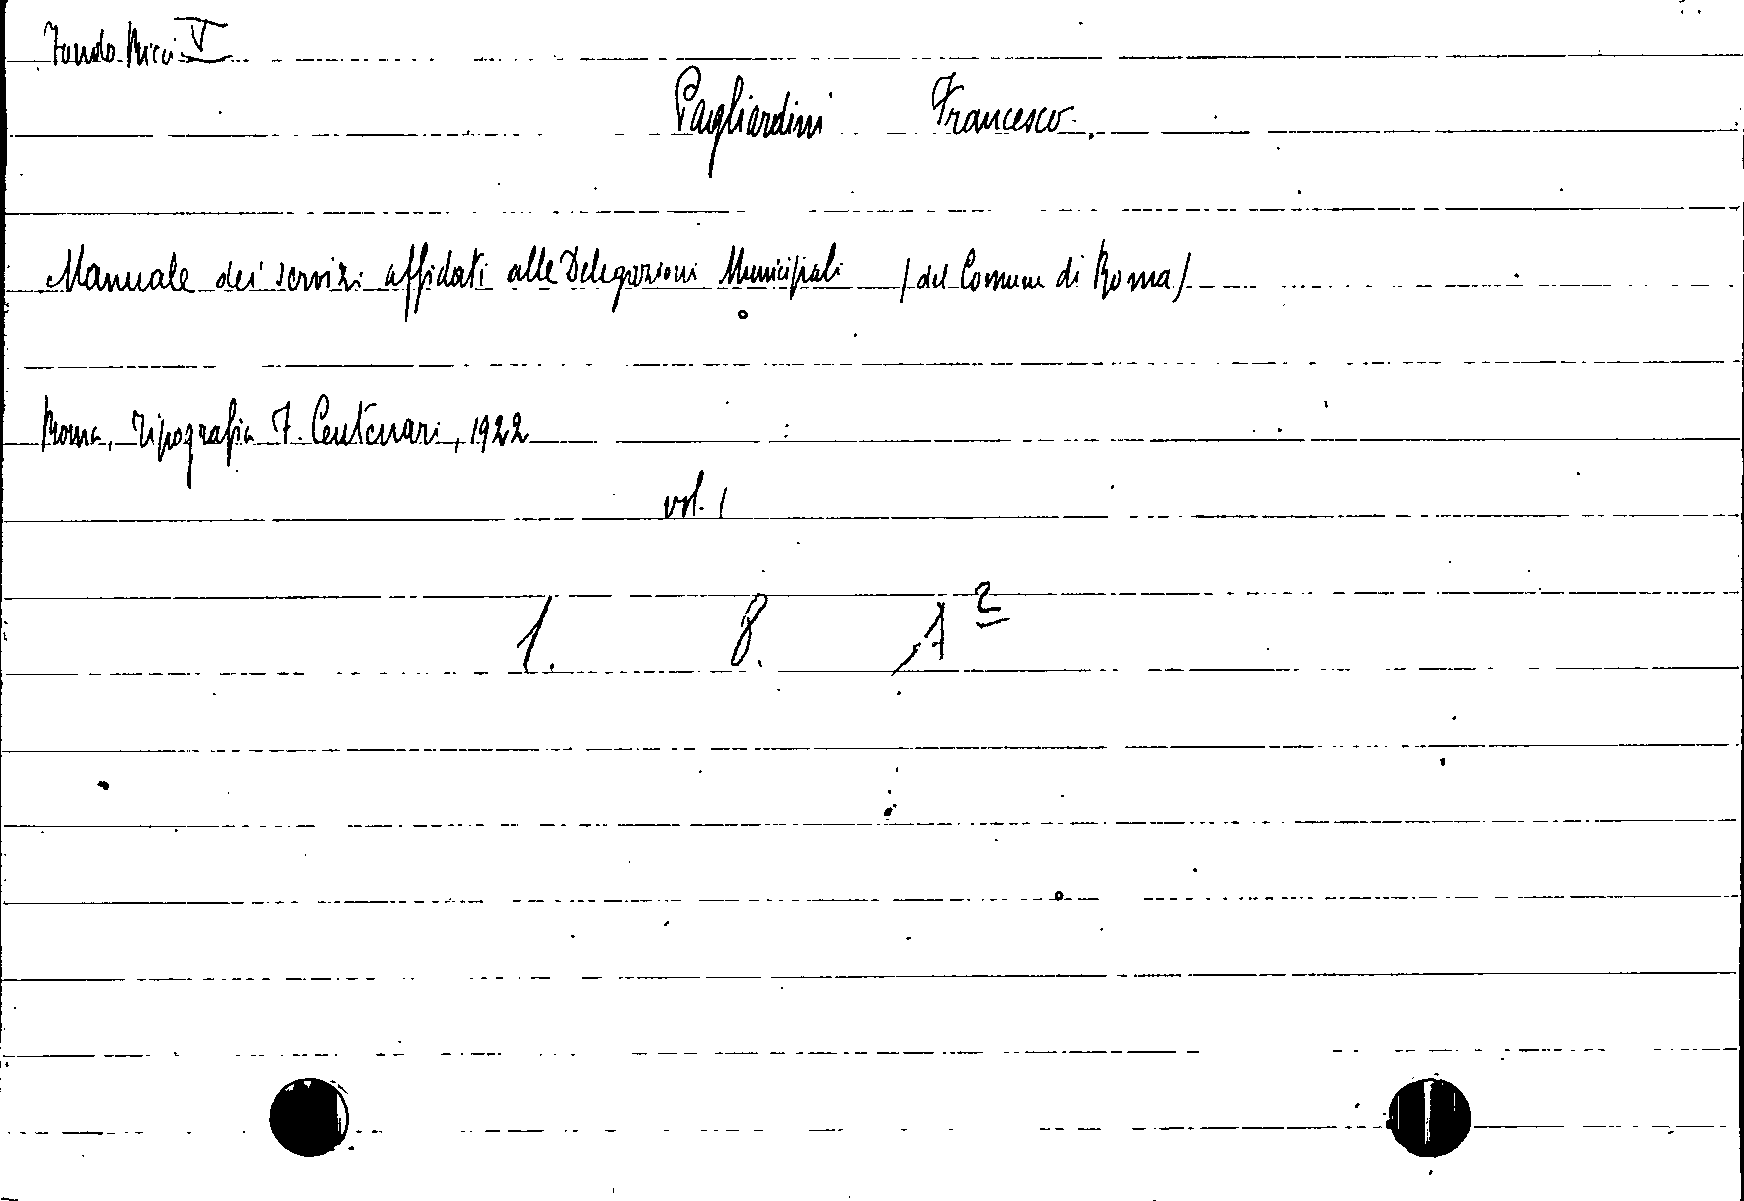 Fondo Ricci V
Pagliardini Francesco.
Manuale dei servizi affidati alle Delegazioni Municipali (del Comune di Roma)
Roma, Tipografia F. Centenari, 1922
vol. 1
1. 8. A 2